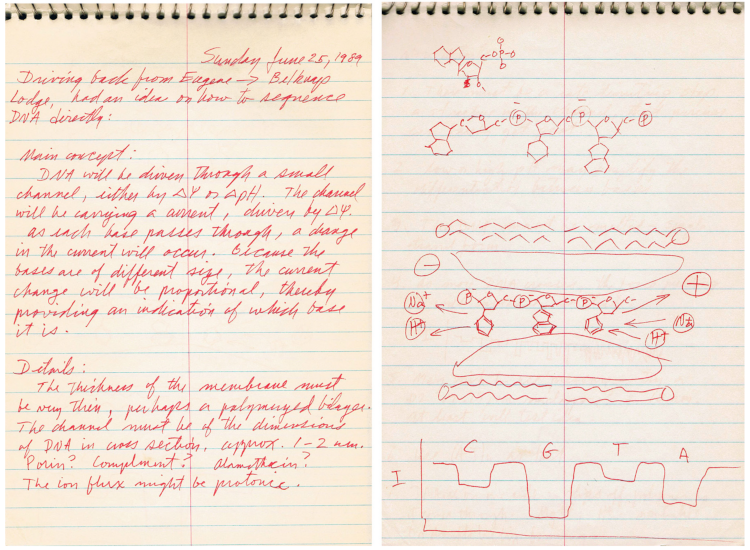 Sunday June 25, 1989
Driving back from Eugene → Belknap
Lodge, had an idea on how to sequence
DNA directly:
Main concept:
DNA will be driven through a small
channel, either by ΔΨ or ΔpH. The channel
will be carrying a current, driven by ΔΨ.
as each base passes through, a change
in the current will occur. Because the
bases are of different size, the current
change will be proportional, thereby
providing an indication of which base
it is.
Details:
The thickness of the membrane must
be very thin, perhaps a polymerized bilayer.
The channel must be of the dimensions
of DNA in cross section, approx. 1-2 nm.
Porin? Complement? Alamethicin?
The ion flux might be protonic.
O
C-O-P-O
O
O
C- O C- P - O C- P - O C- P -
−
+
Na+ P - O C- P - O C- P - O C-
H+ H+ Na+
C G T A
I